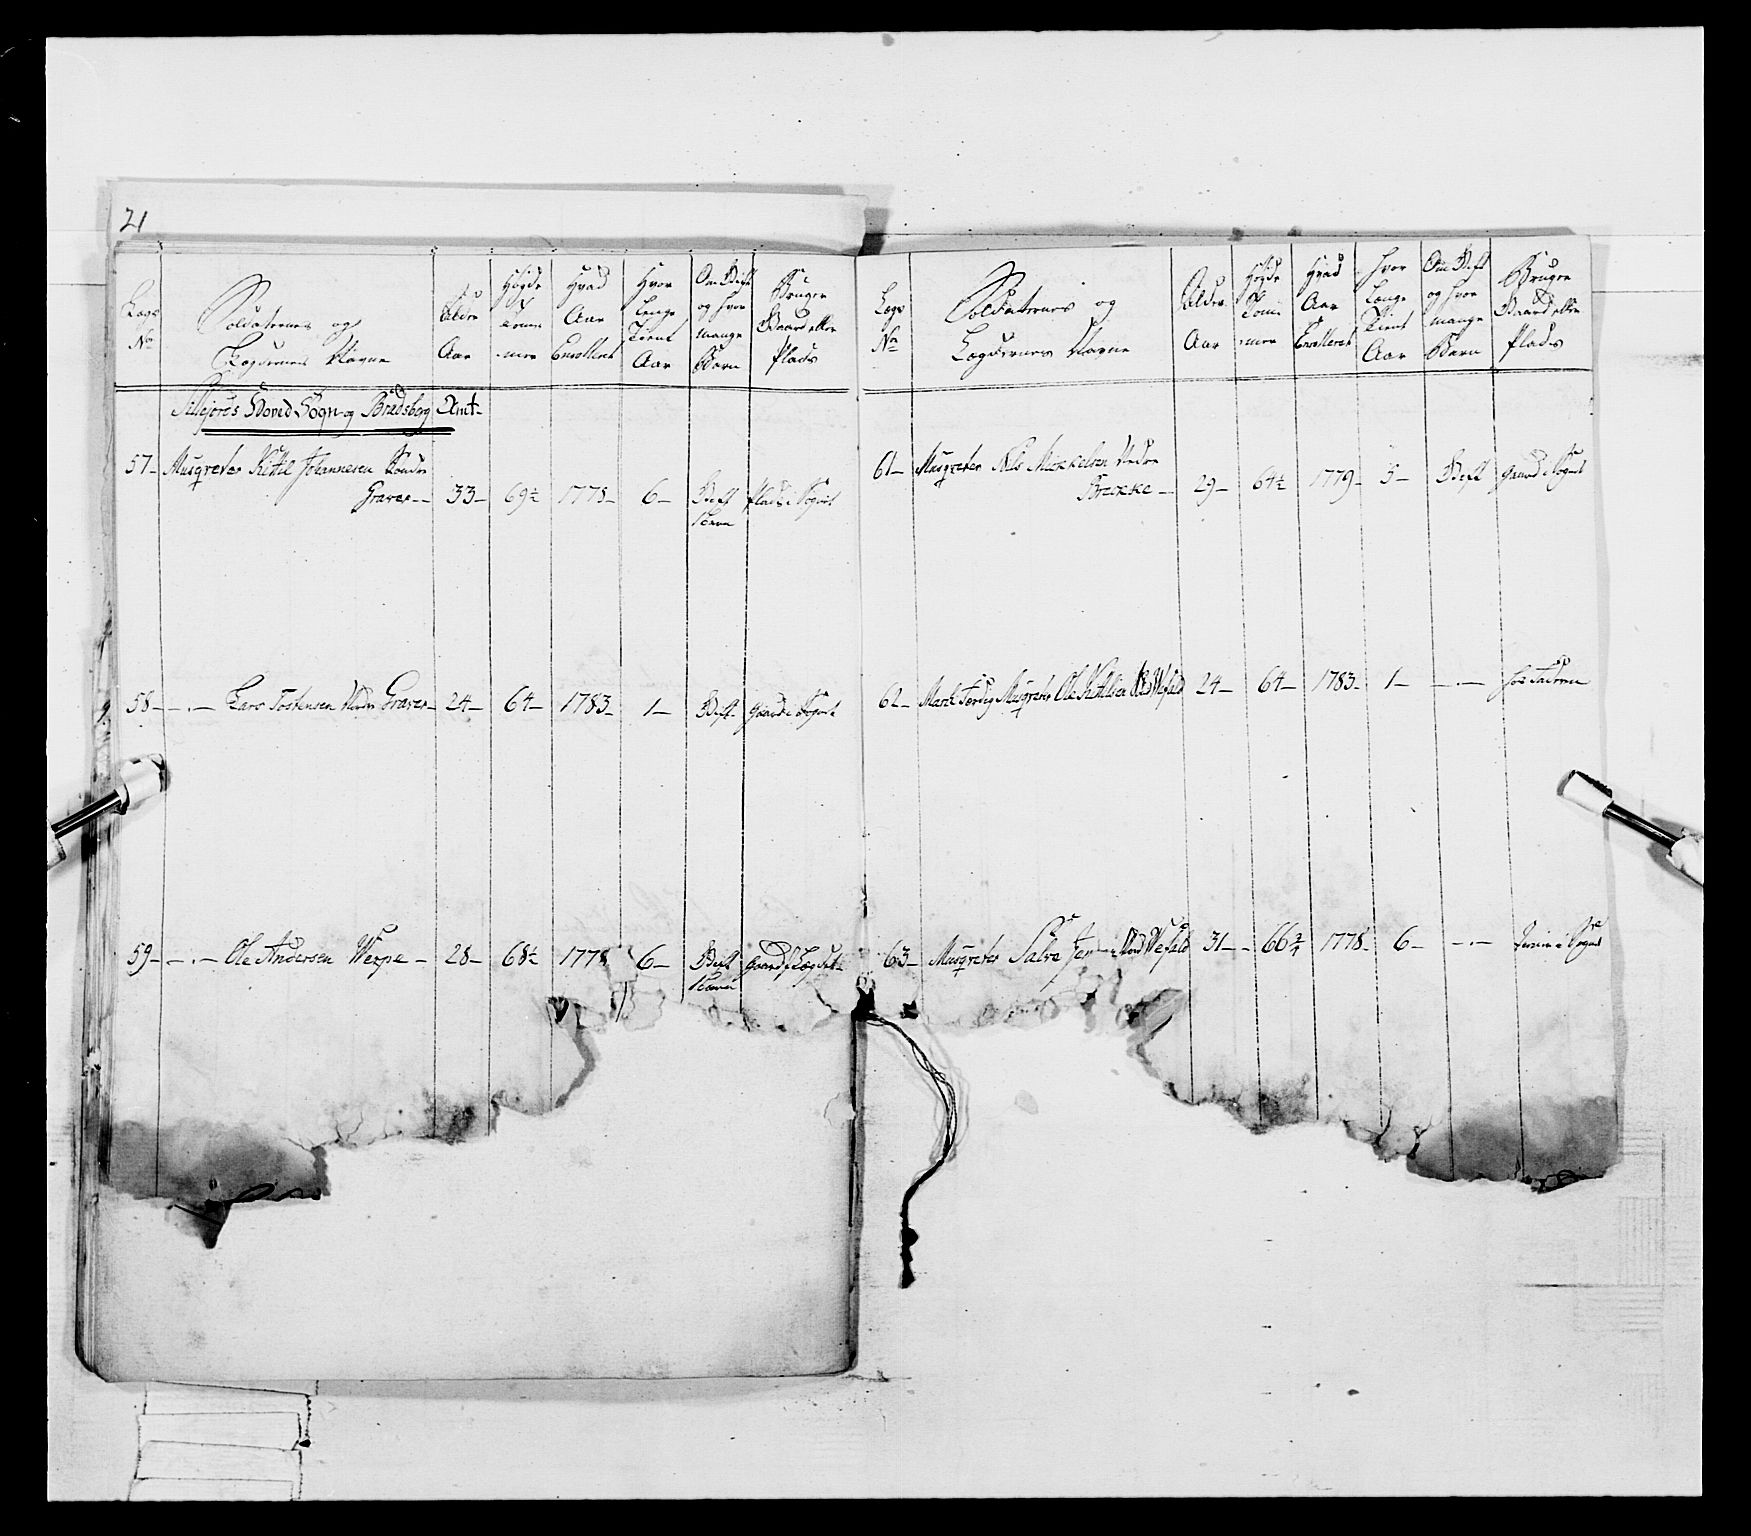 21
Lægs No
Soldaternes og Lægdernes Navne
Alder Aar
Høyde Tommer
Hvad Aar Enrolleret
Hvor Længe Tient Aar
Om Gift og hvor mange Børn
Bruger Gaard eller Plads
Sillejords Hoved Sogn og Bradsberg Amt
57 - Musqueteer Kittil Johannesen Söndre
Graver - 33 - 69½ 1778 - 6 - Gift Plads i Sognet
58 - - . - Lars Tostensen Graver - 24 - 64 - 1783 - 1 - Gift Gaard i Sognet
59 - - . - Ole Andersen Werpe - 28 - 68½ 1778 6 - Gift Gaard
Lægs No
Soldaternes og Lægdernes Navne
Alder Aar
Høyde Tommer
Hvad Aar Enrolleret
Hvor Længe Tient Aar
Om Gift og hvor mange Børn
Bruger Gaard eller Plads
61 - Musqueteer Nils Mikkelsen Nedre
Brekke - 29 - 64½ 1779 - 5 - Gift Gaard i Sognet
62 - March Færdig Musqueteer Ole Kittilsen Wefald 24 - 64 - 1783 - 1 - - . - hos Faderen
63 - Musqueteer Salve Nord Wefald 31 - 66¾ 1778 - 6 - - . - i Sognet